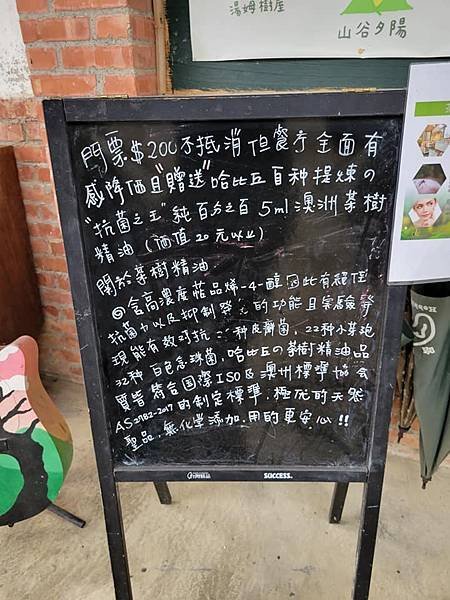 湯姆樹屋
山谷夕陽
門票$200不抵消但餐廳全面有
感降价且"贈送"哈比丘自种提煉の
"抗菌之王"純百分之百5ml澳洲茶樹
精油(価值20元以上)
關於茶樹精油
含高濃度萜品烯-4-醇因此有絕佳
抗菌力以及抑制發炎的功能且実驗發
現能有效対抗 种皮癬菌,22种小芽孢
32种 白色念珠菌,哈比丘の茶樹精油品
質皆符合国際ISO及澳州標準協会
AS2782-2017的制定標準,極优的天然
聖品,無化学添加,用的更安心!!
SUCCESS.